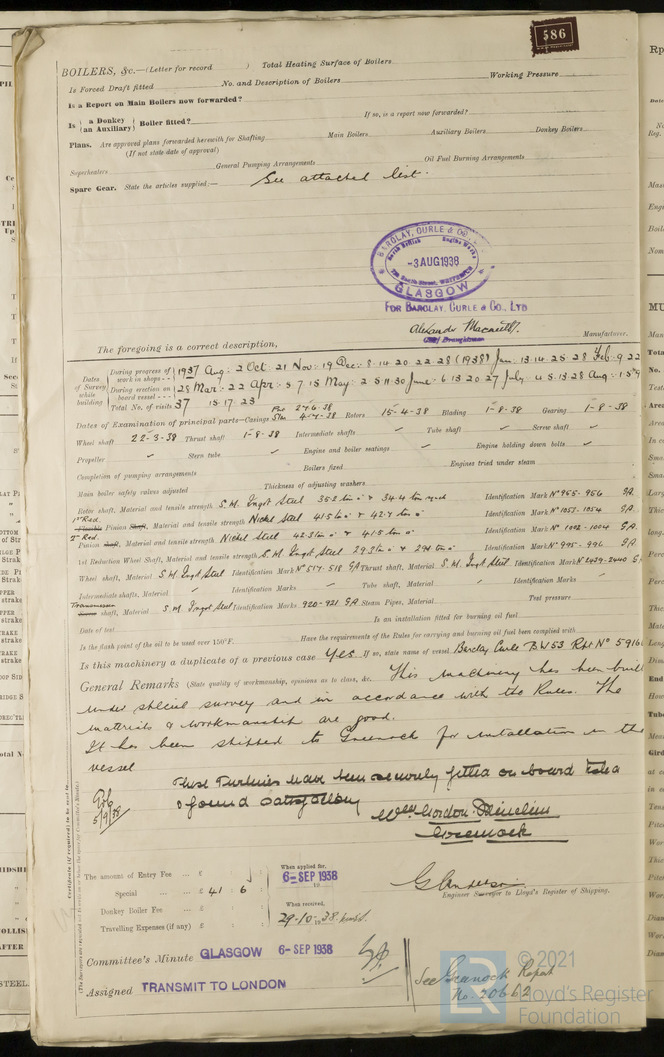 586
BOILERS, &c.—(Letter for record ) Total Heating Surface of Boilers
Is Forced Draft fitted No. and Description of Boilers Working Pressure
Is a Report on Main Boilers now forwarded?
Is { a Donkey (an Auxiliary) } Boiler fitted? If so, is a report now forwarded?
Plans. Are approved plans forwarded herewith for Shafting Main Boilers Auxiliary Boilers Donkey Boilers
(If not state date of approval)
Superheaters General Pumping Arrangements Oil Fuel Burning Arrangements
Spare Gear. State the articles supplied:— See attached list.
BARCLAY, CURLE & Co., LTD
North British Engine Works
-3 AUG 1938
GLASGOW
FOR BARCLAY, CURLE & CO., LTD
Chief Draughtsman
The foregoing is a correct description, Manufacturer.
Dates of Survey while building
During progress of work in shops -- 1937 Aug: 2 Oct 21 Nov: 19 Dec: 8. 14 20 22 28 (1938) Jan: 13. 14. 25. 28 Feb. 9 22
During erection on board vessel --- 28 Mar: 22 Apr: 5 7 15 May: 2 5 11 30 June: 6 13 20 27 July: 4 5. 13. 28 Aug: 1
Total No. of visits 37 15 - 17. 23
Dates of Examination of principal parts—Casings Por 27-6-38 Stbd 4-7-38 Rotors 15-4-38 Blading 1-8-38 Gearing 1-8-38
Wheel shaft 22-3-38 Thrust shaft 1-8-38 Intermediate shafts ✓ Tube shaft ✓ Screw shaft ✓
Propeller ✓ Stern tube ✓ Engine and boiler seatings ✓ Engine holding down bolts ✓
Completion of pumping arrangements Boilers fixed Engines tried under steam
Main boiler safety valves adjusted Thickness of adjusting washers
Rotor shaft, Material and tensile strength S.M. Ingot Steel 35.2 ton & 34.4 ton Identification Mark No 955-956 GA.
1st Red. Flexible Pinion Shaft, Material and tensile strength Nickel Steel 41.5 ton & 42.7 ton Identification Mark No 1053-1054 GA.
2nd Red. Pinion shaft, Material and tensile strength Nickel Steel 42.3 ton & 41.5 ton Identification Mark No 1002-1004 GA
1st Reduction Wheel Shaft, Material and tensile strength S.M. Ingot Steel Identification Mark No 995-996 GA
Wheel shaft, Material S M Ingot Steel Identification Mark No 517-518 GA Thrust shaft, Material S.M. Ingot Steel Identification Mark No 2439-2440 G
Intermediate shafts, Material ✓ Identification Marks ✓ Tube shaft, Material ✓ Identification Marks ✓
shaft, Material S M Ingot Steel Identification Marks 920-921 GA Steam Pipes, Material Test pressure
Date of test Is an installation fitted for burning oil fuel
Is the flash point of the oil to be used over 150°F. Have the requirements of the Rules for carrying and burning oil fuel been complied with
Is this machinery a duplicate of a previous case Yes If so, state name of vessel Barclay Curle BW 53 Rpt No 5916
General Remarks (State quality of workmanship, opinions as to class, &c. This machinery has been built
under special survey and in accordance with the Rules. The
materials & workmanship are good.
It has been shipped to Greenock for installation in the
vessel
These Turbines have been securely fitted on board
& found satisfactory
5/9/38
Wm Gordon
Greenock
The amount of Entry Fee ... £ : :
Special ... ... £ 41 : 6 :
Donkey Boiler Fee ... £ : :
Travelling Expenses (if any) £ : :
When applied for,
6-SEP 1938
When received,
29-10-1938
G Anderson
Engineer Surveyor to Lloyd's Register of Shipping.
Committee's Minute GLASGOW 6-SEP 1938
Assigned TRANSMIT TO LONDON
See Greenock Report
No. 20662
© 2021
Lloyd's Register
Foundation